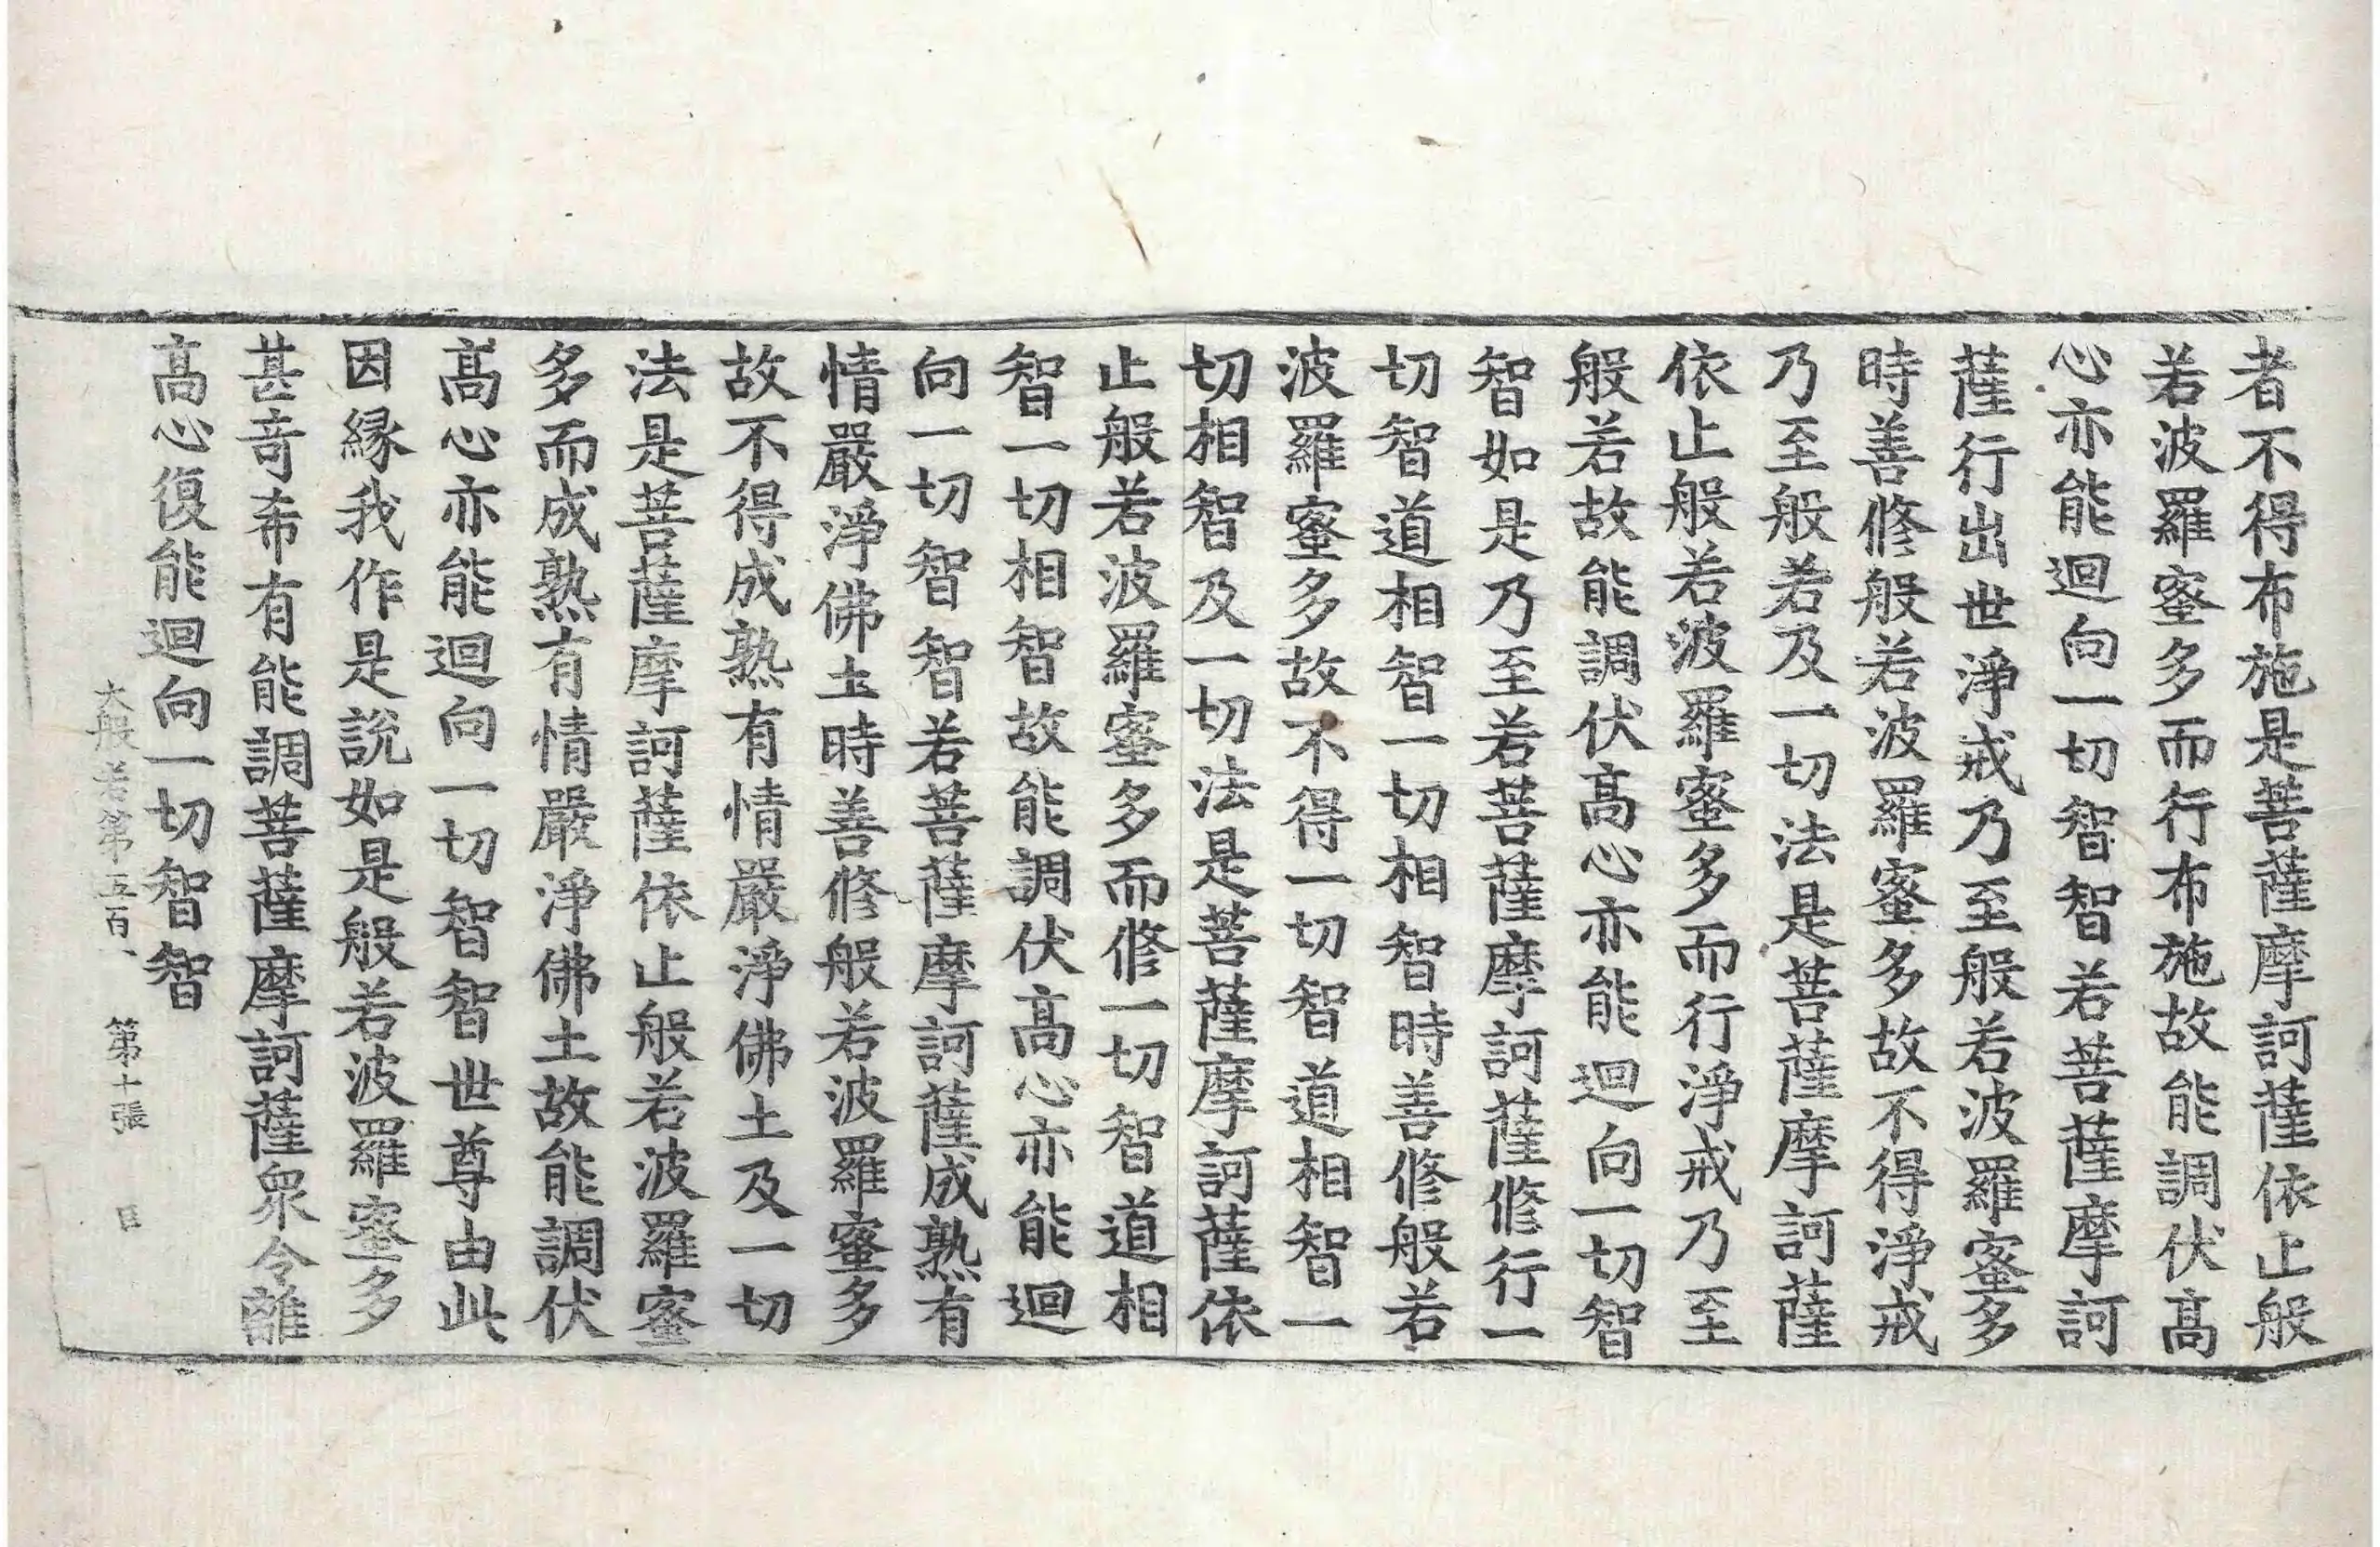 者不得布施是菩薩摩訶薩依止般
若波羅蜜多而行布施故能調伏髙
心亦能迴向一切智智若菩薩摩訶
薩行出世淨戒乃至般若波羅蜜多
時善修般若波羅蜜多故不得淨戒
乃至般若及一切法是菩薩摩訶薩
依止般若波羅蜜多而行淨戒乃至
般若故能調伏髙心亦能迴向一切智
智如是乃至若菩薩摩訶薩修行一
切智道相智一切相智時善修般若
波羅蜜多故不得一切智道相智一
切相智及一切法是菩薩摩訶薩依
止般若波羅蜜多而修一切智道相
智一切相智故能調伏髙心亦能迴
向一切智智若菩薩摩訶薩成熟有
情嚴淨佛土時善修般若波羅蜜多
故不得成熟有情嚴淨佛土及一切
法是菩薩摩訶薩依止般若波羅蜜
多而成熟有情嚴淨佛土故能調伏
髙心亦能迴向一切智智世尊由此
因縁我作是說如是般若波羅蜜多
甚竒希有能調菩薩摩訶薩衆令離
髙心復能迴向一切智智
大般若第五百 第十張